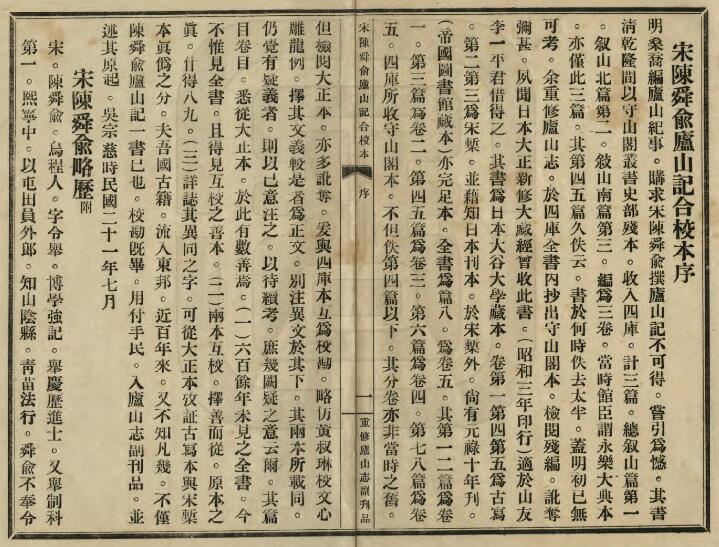 宋陳舜俞廬山記合校本序
明桑喬編廬山紀事。購求宋陳舜俞撰廬山記不可得。嘗引爲憾。其書
淸乾隆間以守山閣叢書史部殘本。收入四庫。計三篇。總叙山篇第一
。叙山北篇第二。敍山南篇第三。編爲三卷。當時館臣謂永樂大典本
。亦僅此三篇。其第四五篇久佚云。書於何時佚去太半。蓋明初已無
可考。余重修廬山志。於四庫全書內抄出守山閣本。檢閱殘編。訛奪
彌甚。夙聞日本大正新修大藏經曾收此書。(昭和三年印行)適於山友
李一平君借得之。其書爲日本大谷大學藏本。卷第一第四第五爲古寫
。第二第三爲宋槧。並藉知日本刊本。於宋槧外。尙有元祿十年刊。
(帝國圖書館藏本)亦完足本。全書爲篇八。爲卷五。其第一二篇爲卷
一。第三篇爲卷二。第四五篇爲卷三。第六篇爲卷四。第七八篇爲卷
五。四庫所收守山閣本。不但佚第四篇以下。其分卷亦非當時之舊。
宋陳舜俞廬山記合校本
序
一
重修廬山志副刊品
但檢閱大正本。亦多訛奪。爰與四庫本互爲校勘。略仿黃叔琳校文心
雕龍例。擇其文義較是者爲正文。別注異文於其下。其兩本所載同。
仍覺有疑義者。則以己意注之。以待續考。庶幾闕疑之意云爾。其篇
目卷目。悉從大正本。於此有數善焉。(一)六百餘年未見之全書。今
不惟見全書。且得見互校之善本。(二)兩本互校。擇善而從。原本之
眞。什得八九。(三)詳誌其異同之字。可從大正本攷証古寫本與宋槧
本眞僞之分。夫吾國古籍。流入東邦。近百年來。又不知凡幾。不僅
陳舜俞廬山記一書已也。校勘旣畢。用付手民。入廬山志副刊品。並
述其原起。吳宗慈時民國二十一年七月
宋陳舜俞略歷附
宋。陳舜俞。烏程人。字令舉。博學強記。舉慶歷進士。又舉制科
第一。熙寧中。以屯田員外郎。知山陰縣。靑苗法行。舜俞不奉令